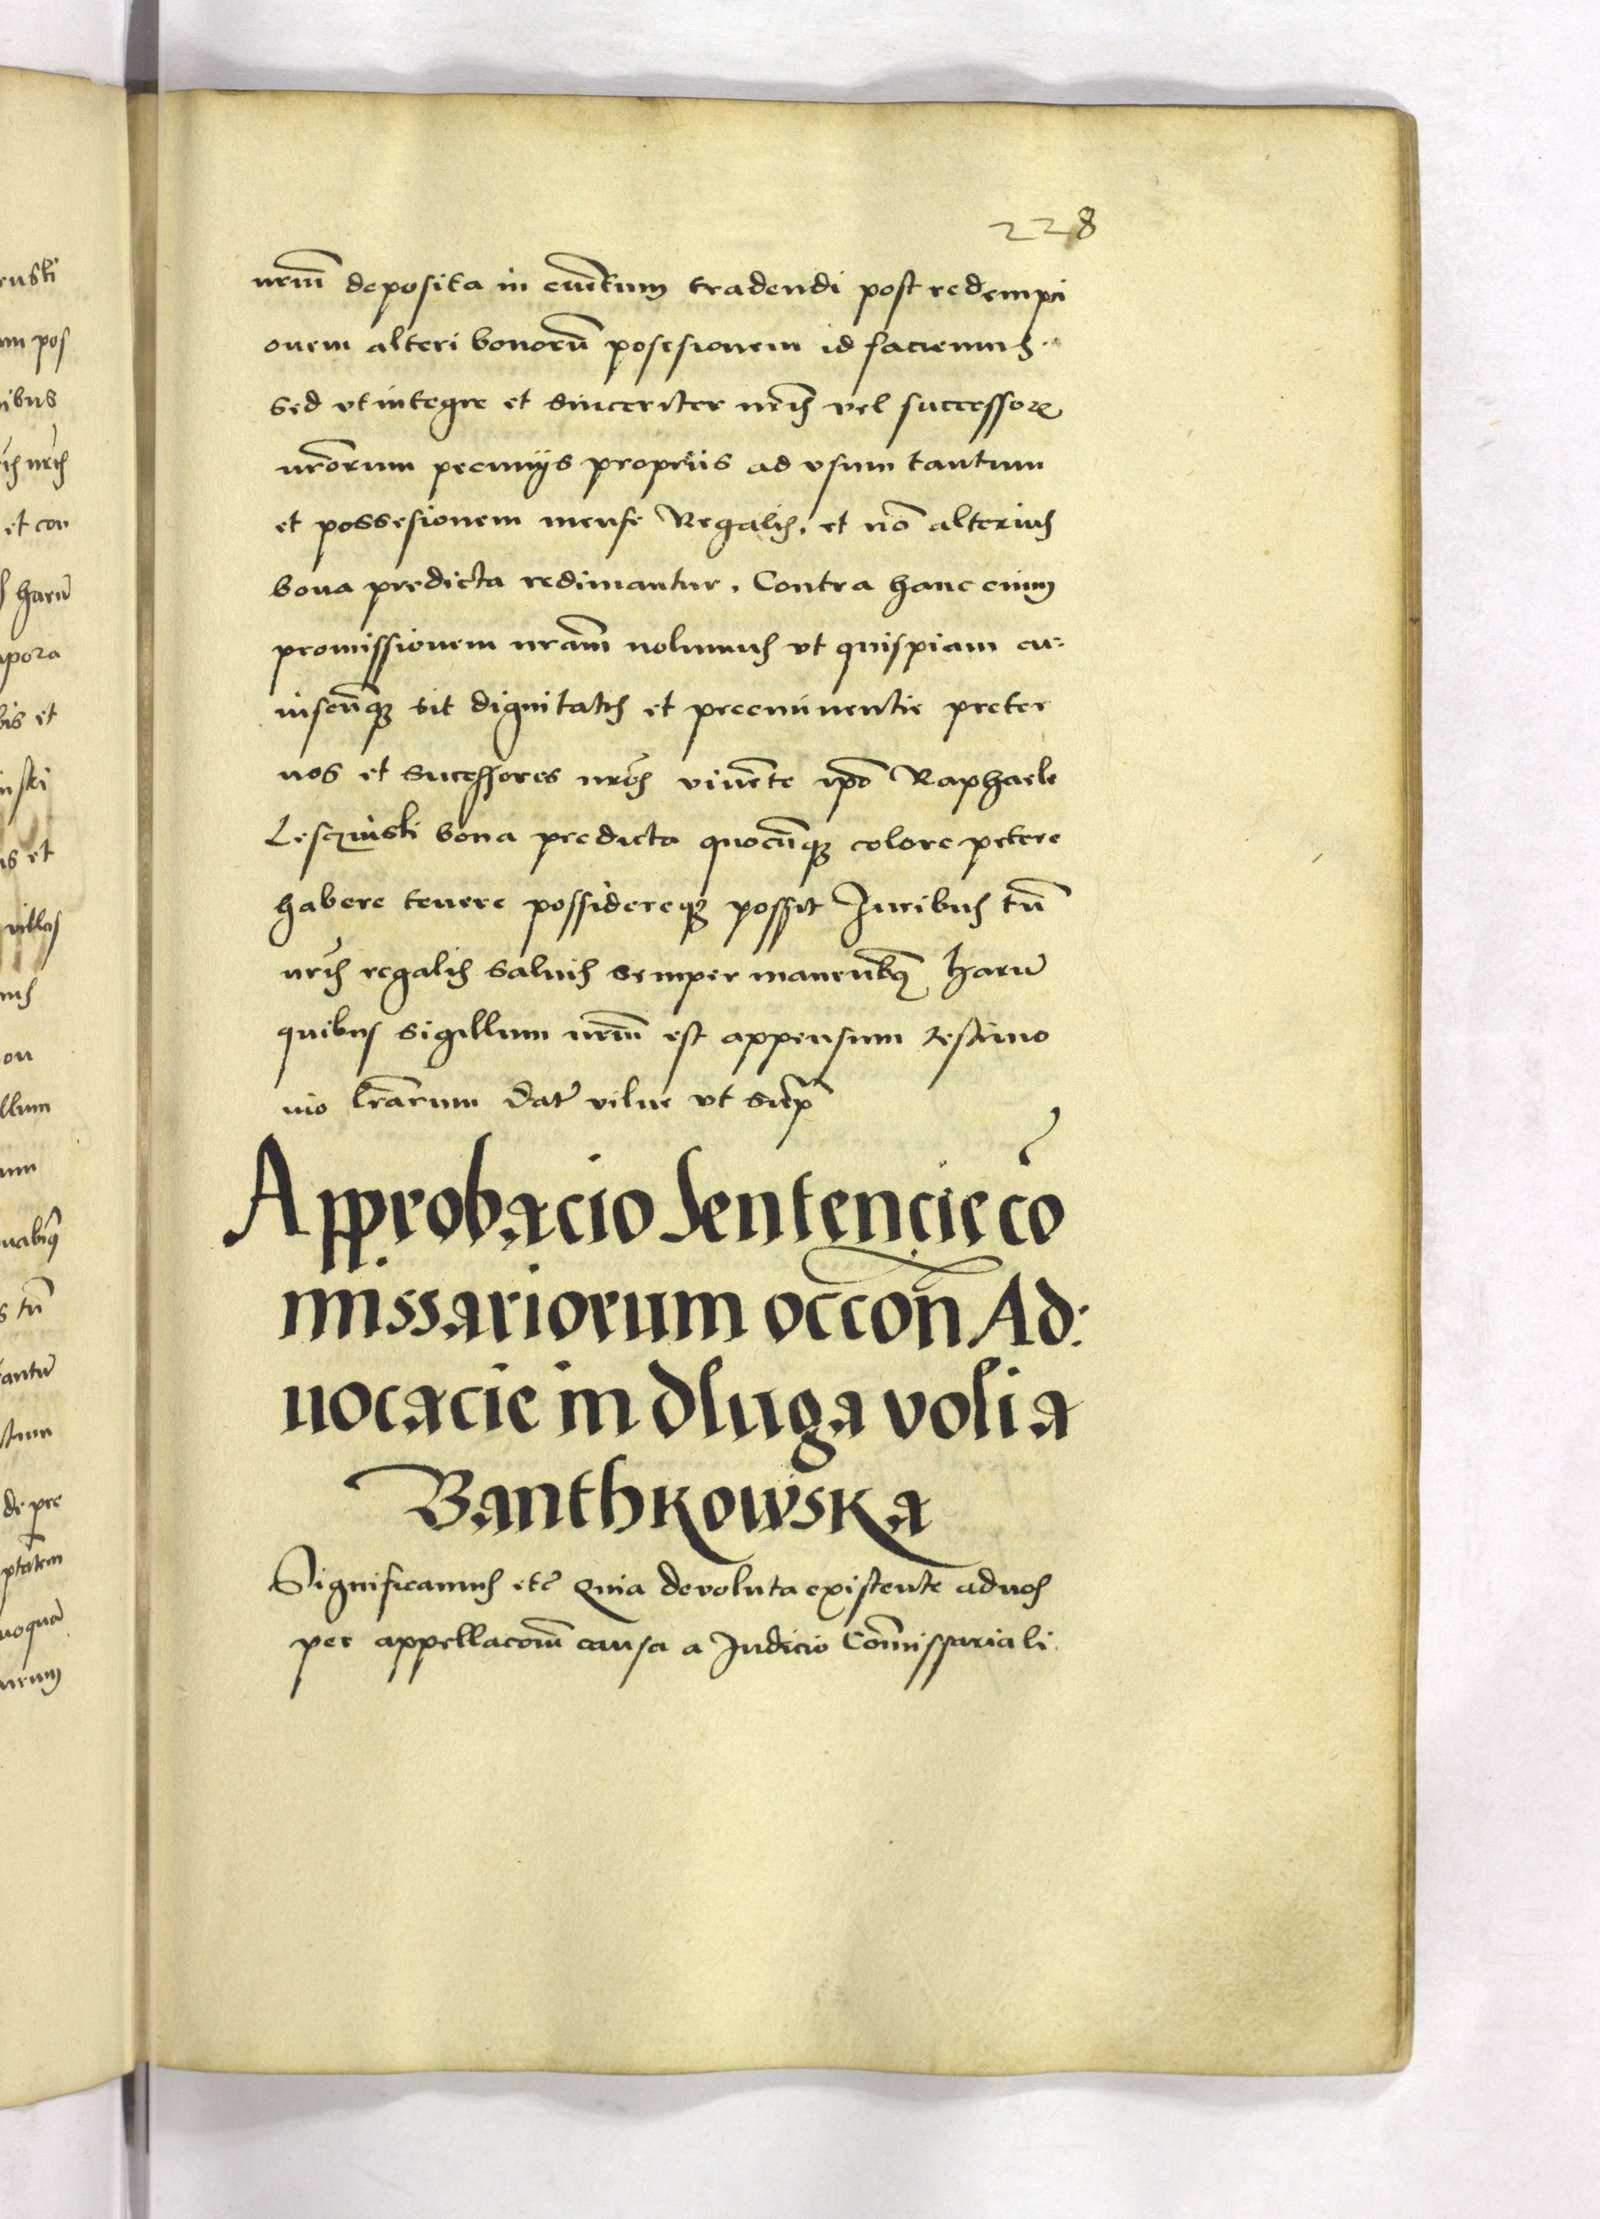 228
nrm̄ deposita in euētum tradendi post redempci
onem alteri bonorū posesionem id faciemus.
sed vt integre et sinceriter nr̄is vel successorꝝ
nrōrum pecunijs proprijs ad vsum tantum
et possesionem mense Regalis. et nō alterius
bona predicta redimantur. Contra hanc enim
promissionem nram̄ nolumus vt quispiam cu=
iuscūqꝫ sit dignitatis et preeminentie preter
nos et sucessores nrōs viuēte ip̄o Raphaele
Lesczinski bona predicta quocūqꝫ colore petere
habere tenere possidereqꝫ possit Juribus tn̄
nrīs regalis saluis semper manentibꝫ harū
quibus sigillum nrm̄ est appensum testimo
nio lrārum Dat̄ vilne vt supᵃ
Approbacio sentencie cō
missariorum occon̄ Ad:
uocacie in dluga volia
Banthkowska
Significamus etc̄ Quia devoluta existente ad nos
per appellacom̄ causa a Judicio Com̄issariali
rusti
um pos
nibus
nrīs
et con
harū
mpora
bis et
inski
is et
villas
on
llum
um
s tn̄
antur̄
de pre
ptatem
noquā